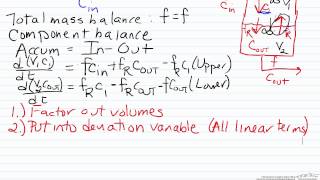 Cin
Total mass balance : f = f
Component balance
Accum = In - Out
d(V₁C₁)/dt = fCin + fRCout - fRC₁ (Upper)
d(V₂Cout)/dt = fRC₁ - fRCout - fCout (Lower)
1.) Factor out volumes
2.) Put into deviation variable (All linear terms)
Cin
V₁
fR
Cout
V₂
f
Cout